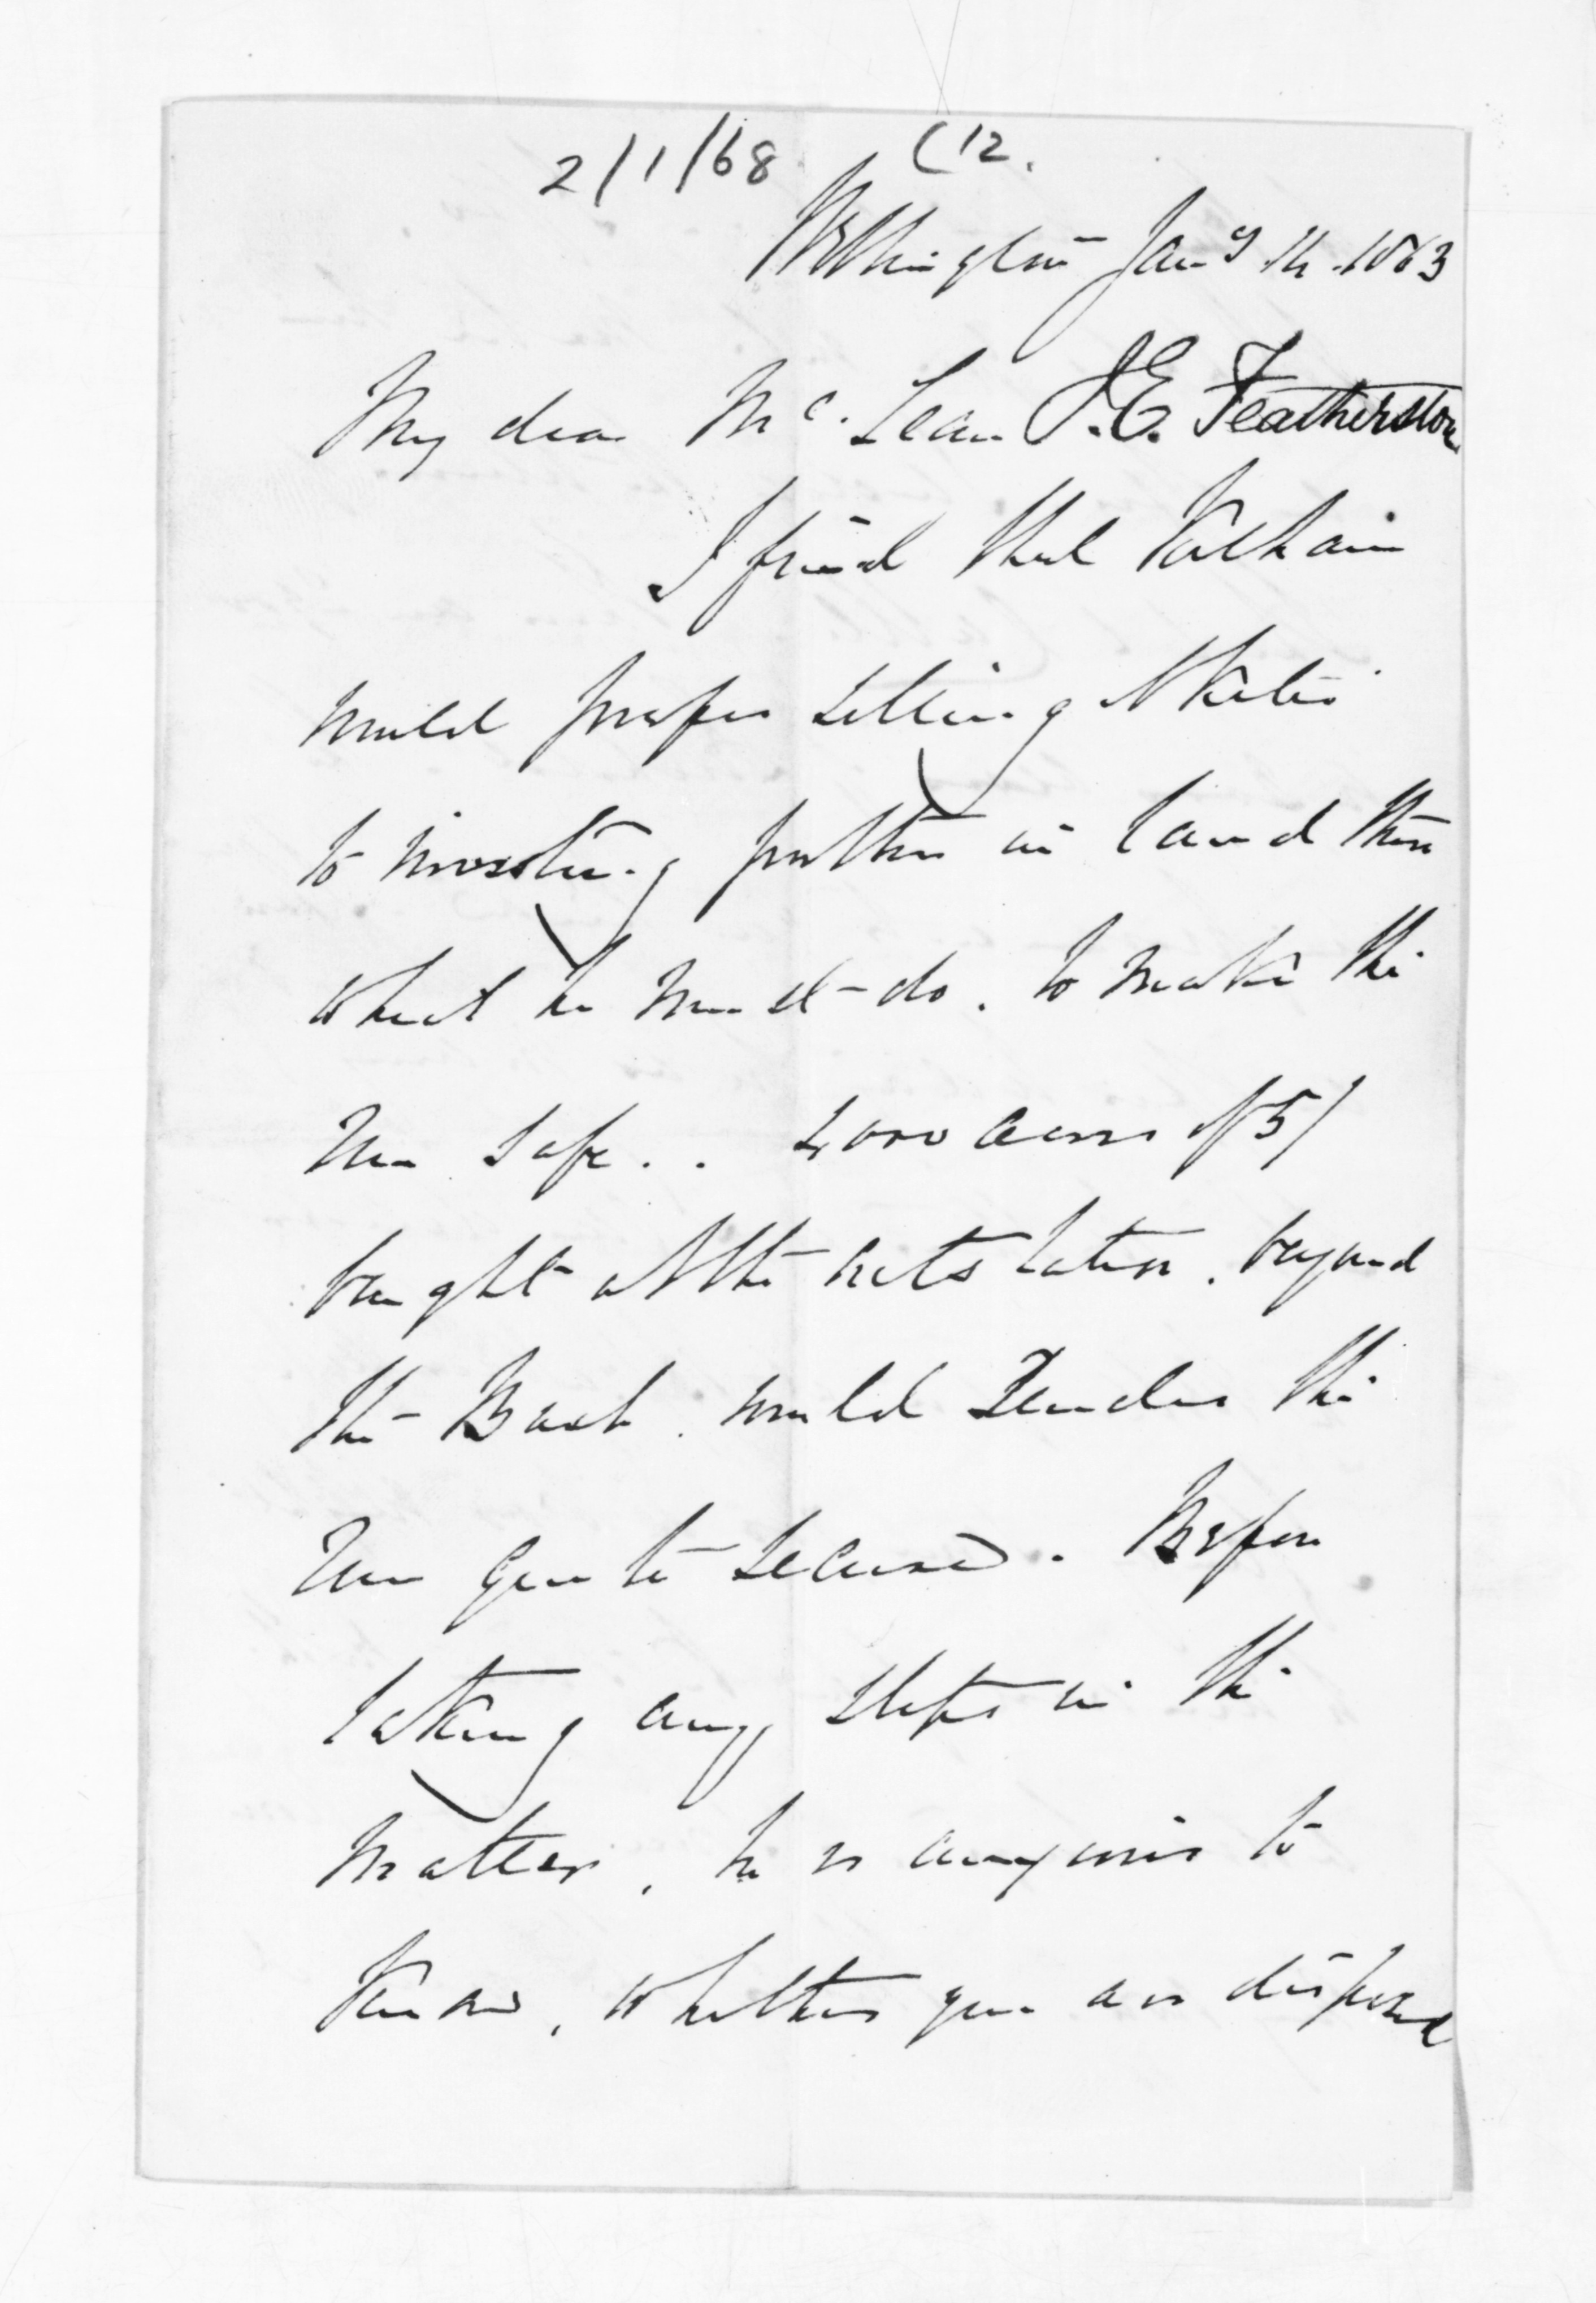 2/1/68 (12.
Wellington Jany 14. 1863
My dear McLean I.E. Featherston
I find that
would prefer selling
to investing further in land there
what he must do. to make the
Run safe.. 4000 acres of 5/
bought at the out station. beyond
the Bush. would render the
Run quite secure. Before
taking any steps in the
matter, he is anxious to
know, whether you are disposed